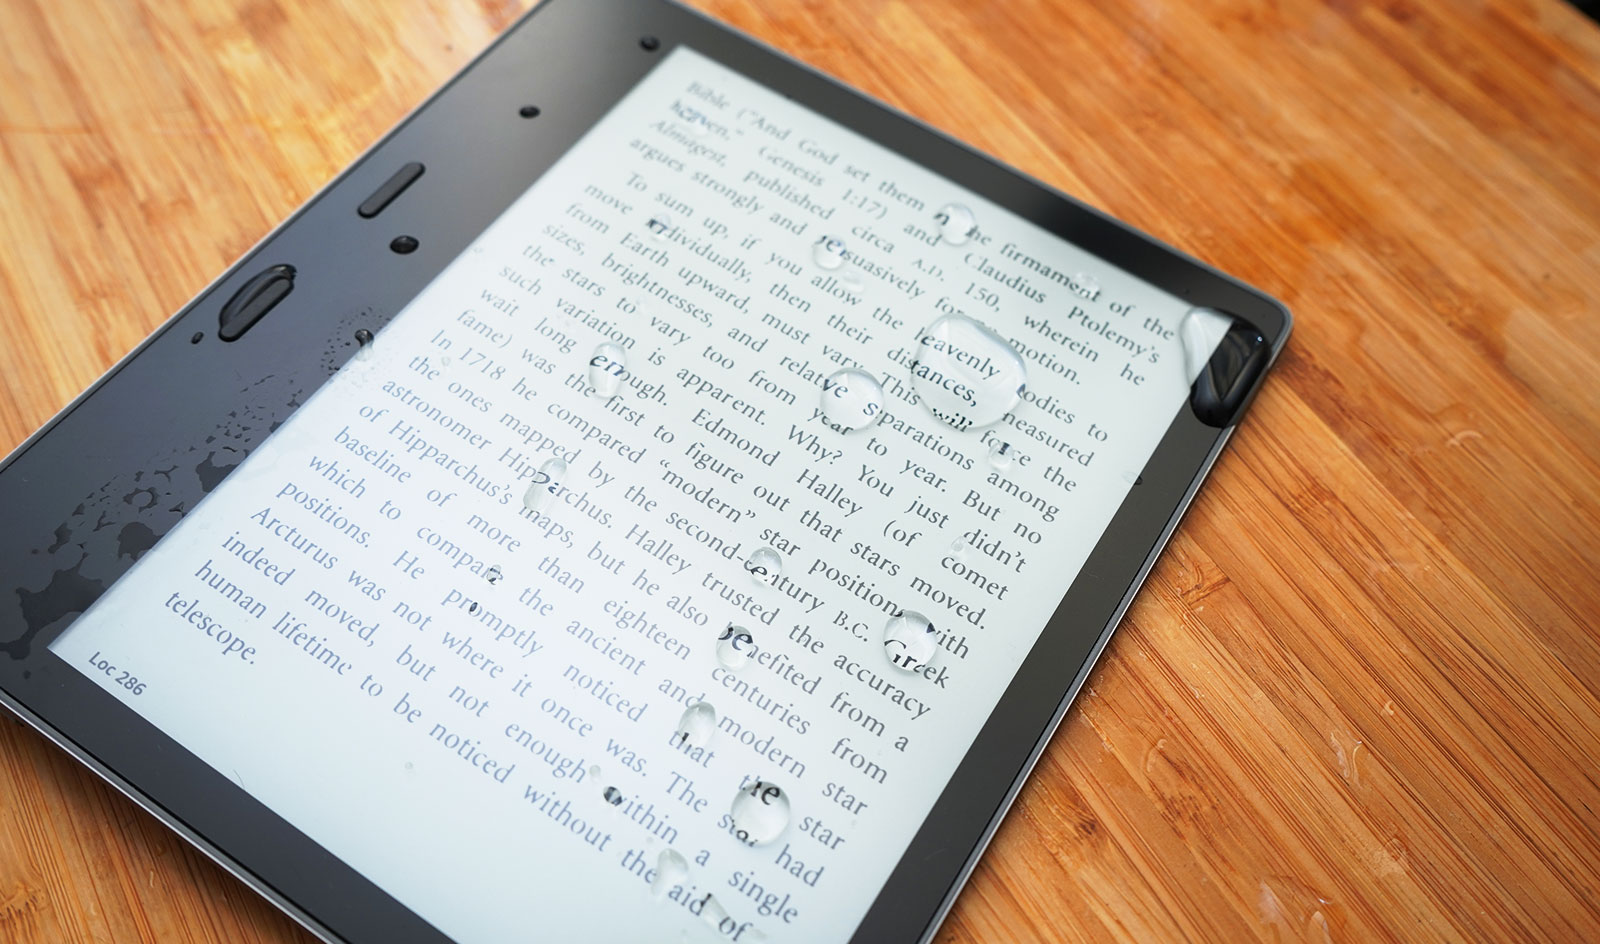 Bible ("And God set them in the firmament of the
heaven," Genesis 1:17) and Claudius Ptolemy's
Almagest, published circa A.D. 150, wherein he
argues strongly and persuasively for motion.
To sum up, if you allow the heavenly bodies to
move individually, then their distances, measured
from Earth upward, must vary. This will force the
sizes, brightnesses, and relative separations among
the stars to vary too from year to year. But no
such variation is apparent. Why? You just didn't
wait long enough. Edmond Halley (of comet
fame) was the first to figure out that stars moved.
In 1718 he compared “modern” star positions with
the ones mapped by the second-century B.C. Greek
astronomer Hipparchus. Halley trusted the accuracy
of Hipparchus's maps, but he also benefited from a
baseline of more than eighteen centuries from
which to compare the ancient and modern star
positions. He promptly noticed that the star
Arcturus was not where it once was. The star had
indeed moved, but not enough within a single
human lifetime to be noticed without the aid of
telescope.
Loc 286